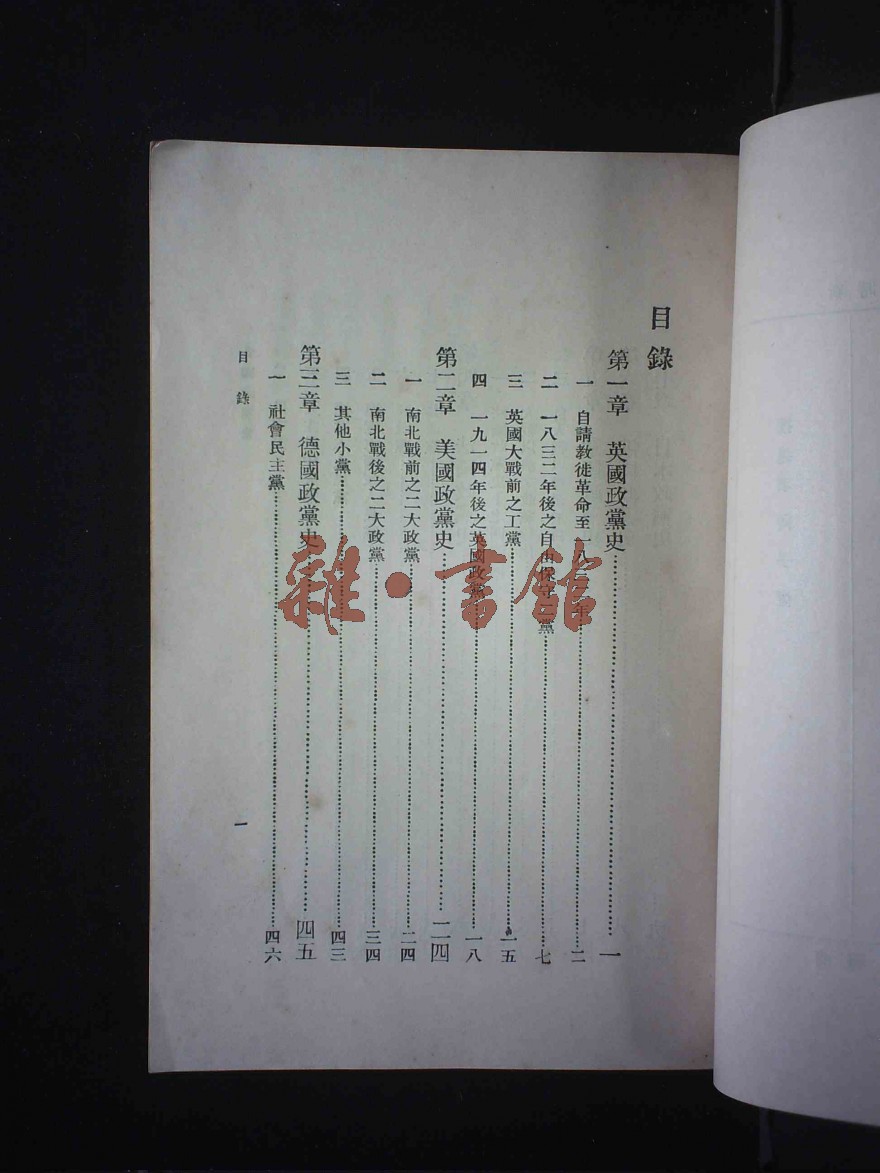 目錄
第一章 英國政黨史……一
一 自請教徒革命至一八三二年……二
二 一八三二年後之自由保守二黨……七
三 英國大戰前之工黨……一五
四 一九一四年後之英國政黨……一八
第二章 美國政黨史……二四
一 南北戰前之二大政黨……二四
二 南北戰後之二大政黨……三四
三 其他小黨……四三
第三章 德國政黨史……四五
一 社會民主黨……四六
目錄 一
雜·書館